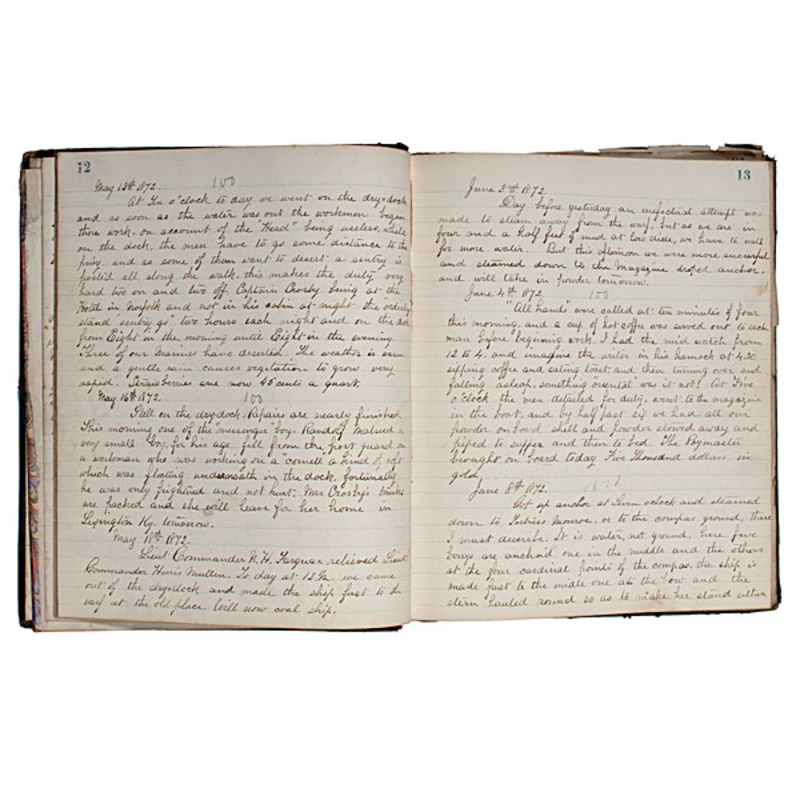 12
May 13th 1872. 100
At Ten o'clock to day we went on the dry-dock
and as soon as the water was out the workmen began
there work. on account of the "Head" being useless, while
on the dock, the men have to go some distance to the
privy. and as some of them want to desert a sentry is
posted all along the walk. this makes the duty very
hard two on and two off. Captain Crosby being at the
Hotel in Norfolk and not in his cabin at night the "orderly"
stand sentry go" two hours each night and on the door
from Eight in the morning until Eight in the evening.
Three of our Marines have deserted. The weather is warm
and a gentle rain causes vegitation to grow very
rapid. Strawberries are now 45 cents a quart.
May 16th 1872. 100
Still on the dry dock. Repairs are nearly finished.
This morning one of the "messenger" boys Randolf a
very small boy, for his age, fell from the guard on
a workman who was working on a a kind of raft
which was floating underneath in the dock. fortunatly
he was only frightned and not hurt. Mrs Crosby's trunks
are packed and she will leave for her home in
Lexington Ky. tomorrow.
May 18th 1872.
Lieut Commander N. H. Farquar relieved Lieut
Commander Mullen. To day at 12 we came
out of the dry dock and made the ship fast to the
warf at the old place. Will now coal ship.
13
June 3rd 1872.
Day before yesterday an inefectual attempt was
made to steam away from the warf. but as we are in
four and a half feet of mud at low tide, we have to wait
for more water. But this afternoon we were more successful
and steamed down to the Magazine droped anchor.
and will take in powder tomorrow.
June 4th 1872. 100
"All hands" were called at ten minutes of four
this morning, and a cup of hot coffee was served out to each
man before begining work. I had the mid watch from
12 to 4. and imagine the writer in his hamock at 4.20
sipping coffee and eating toast. and then turning over and
falling asleep, something oriental" was it not! At Five
o'clock the men detailed for duty, went to the magazine
in the boat, and by half past six we had all our
powder on board shell and powder stowed away and
piped to supper and then to bed. The Paymaster
brought on board today Five Thousand dollars in
gold.
June 8th 1872.
Got up anchor at Seven o'clock and steamed
down to Fortress Monroe. or to the compas ground, there
I must describe. It is water, not ground, here five
bouys are anchoid one in the middle and the others
at the four cardinal points of the compas. the ship is
made fast to the midle one at the bow and the
stern hauled round so as to make her stand